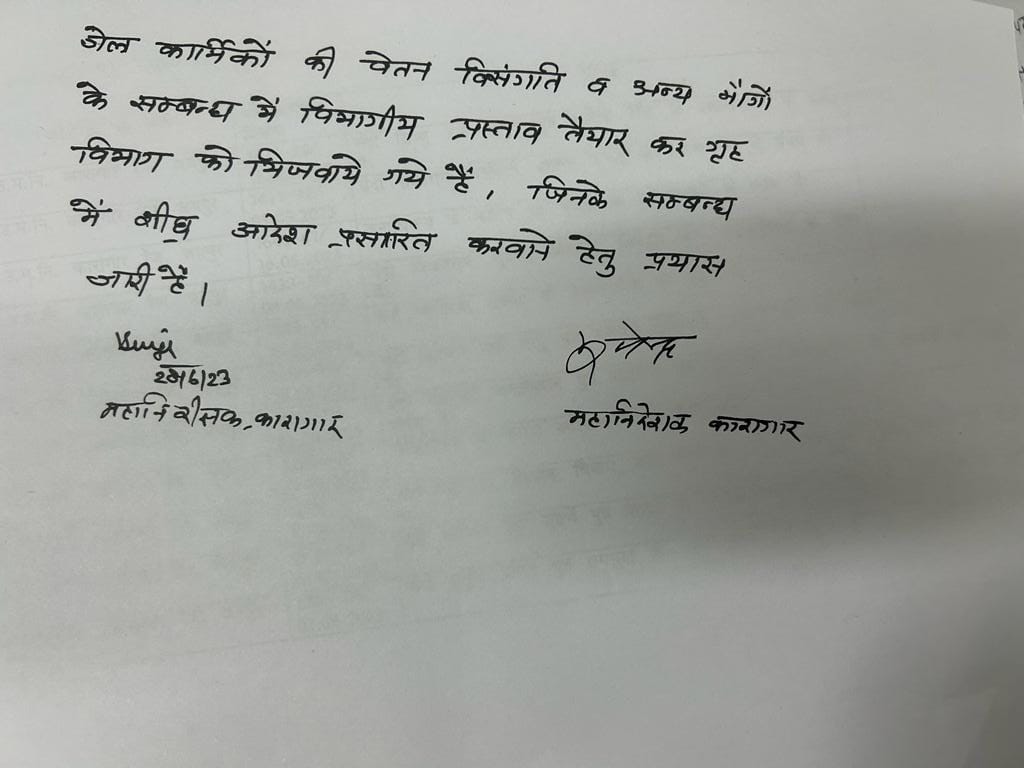 जेल कार्मिकों की वेतन विसंगति व अन्य माँगों
के सम्बन्ध में विभागीय प्रस्ताव तैयार कर गृह
विभाग को भिजवाये गये हैं, जिनके सम्बन्ध
में शीघ्र आदेश प्रसारित करवाने हेतु प्रयास
जारी है।
महानिरीक्षक, कारागार
महानिदेशक कारागार